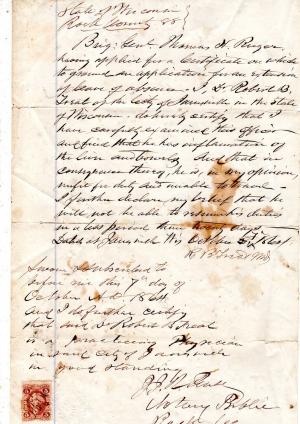 State of Wisconsin
Rock County ss
Brig. Genl. Thomas H. Ruger
having applied for a Certificate on which
to ground an application for an extension
of leave of absence. I Dr Robert B.
Treat of the City of Janesville in the State
of Wisconsin do hereby certify that I
have carefully examined this officer
and find that he has inflamation of
the liver and bowels and that in
consequence thereof he is, in my opinion,
unfit for duty and unable to travel.
I further declare my belief that he
will not be able to resume his duties
in a less period than twenty days
Dated at Janesville Wis October 1864
R B Treat MD
Sworn & subscribed to
before me this 7th day of
October A.D. 1864
and I do further certify
that said Dr Robert B Treat
is a practicing Physician
in said city of Janesville
in good standing
Notary Public
Rock Co